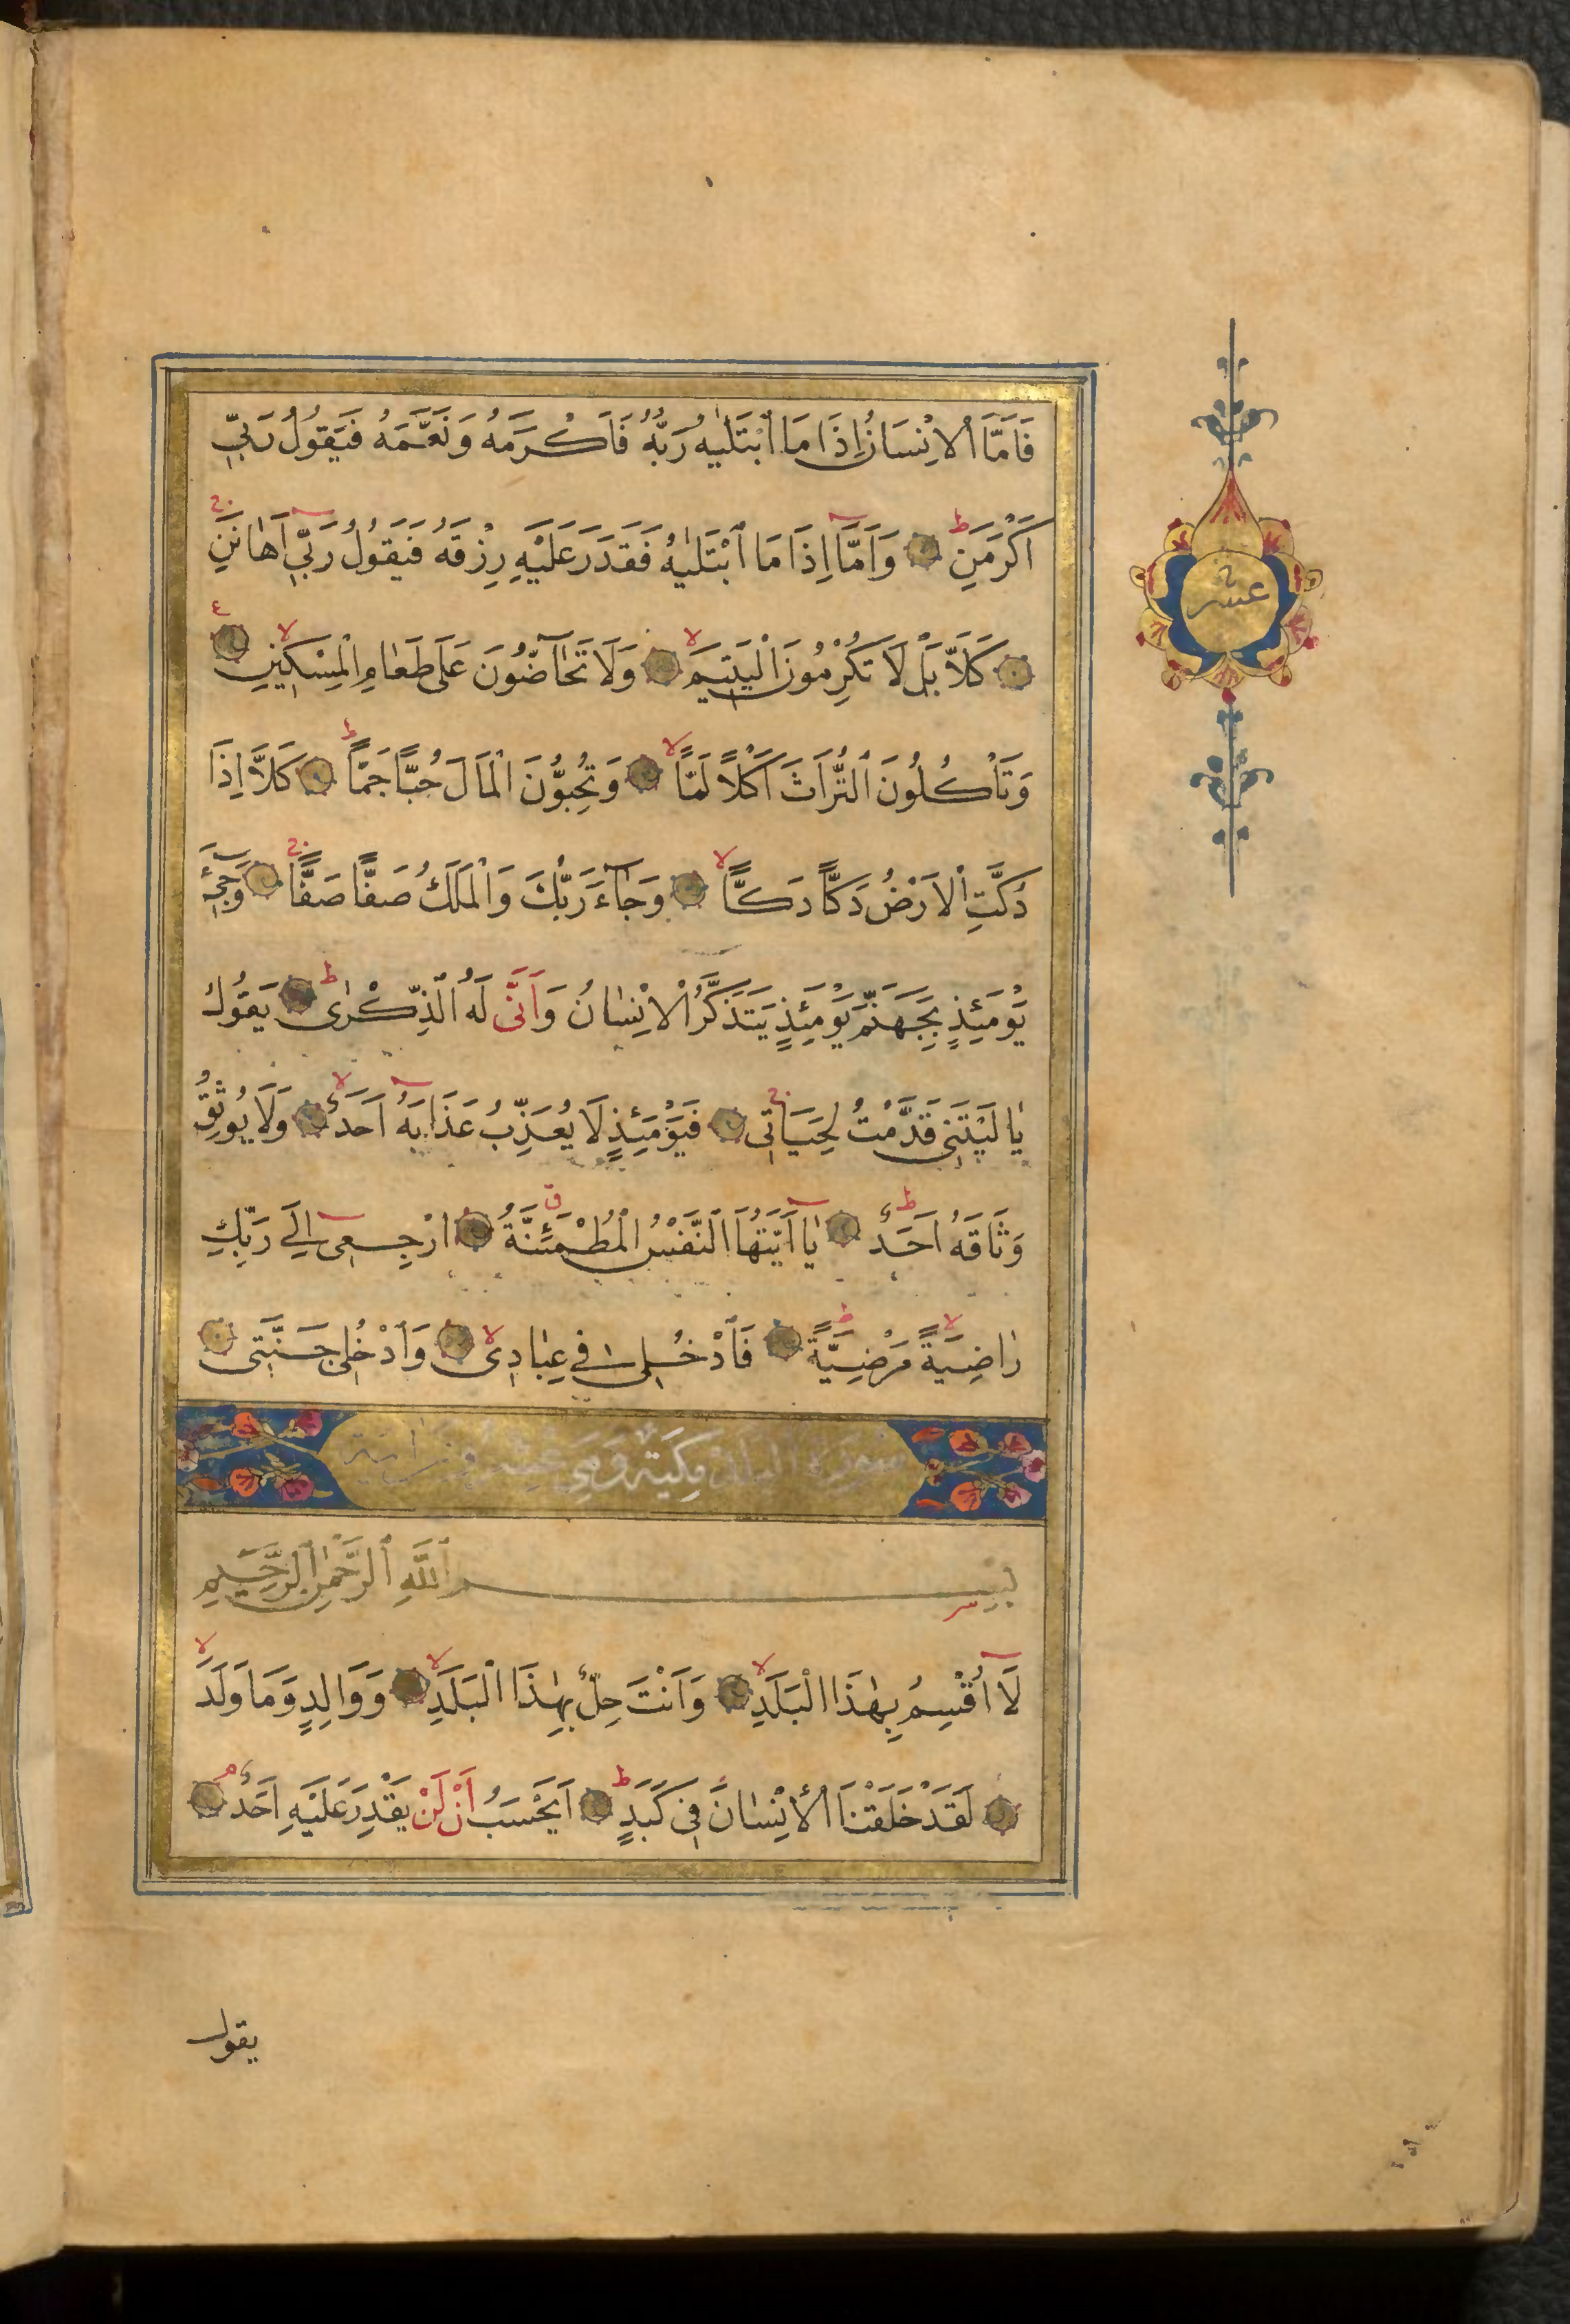 فَاَمَّا الْاِنْسَانُ اِذَا مَا ابْتَلٰيهُ رَبُّهُ فَاَكْرَمَهُ وَنَعَّمَهُ فَيَقُولُ رَبّٖي
اَكْرَمَنِ وَاَمَّا اِذَا مَا ابْتَلٰيهُ فَقَدَرَ عَلَيْهِ رِزْقَهُ فَيَقُولُ رَبّٖي اَهَانَنِ
كَلَّا بَلْ لَا تُكْرِمُونَ الْيَتٖيمَ وَلَا تَحَاضُّونَ عَلَى طَعَامِ الْمِسْكٖينِ
وَتَأْكُلُونَ التُّرَاثَ اَكْلًا لَمًّا وَتُحِبُّونَ الْمَالَ حُبًّا جَمًّا كَلَّا اِذَا
دُكَّتِ الْاَرْضُ دَكًّا دَكًّا وَجَاءَ رَبُّكَ وَالْمَلَكُ صَفًّا صَفًّا وَجٖيءَ
يَوْمَئِذٍ بِجَهَنَّمَ يَوْمَئِذٍ يَتَذَكَّرُ الْاِنْسَانُ وَاَنَّى لَهُ الذِّكْرٰى يَقُولُ
يَا لَيْتَنٖي قَدَّمْتُ لِحَيَاتٖي فَيَوْمَئِذٍ لَا يُعَذِّبُ عَذَابَهُ اَحَدٌ وَلَا يُوثِقُ
وَثَاقَهُ اَحَدٌ يَا اَيَّتُهَا النَّفْسُ الْمُطْمَئِنَّةُ ارْجِعٖي اِلَى رَبِّكِ
رَاضِيَةً مَرْضِيَّةً فَادْخُلٖي فٖي عِبَادٖي وَادْخُلٖي جَنَّتٖي
سورة البلد مكية وهي عشرون اية
بِسْمِ اللّٰهِ الرَّحْمٰنِ الرَّحٖيمِ
لَا اُقْسِمُ بِهٰذَا الْبَلَدِ وَاَنْتَ حِلٌّ بِهٰذَا الْبَلَدِ وَوَالِدٍ وَمَا وَلَدَ
لَقَدْ خَلَقْنَا الْاِنْسَانَ فٖي كَبَدٍ اَيَحْسَبُ اَنْ لَنْ يَقْدِرَ عَلَيْهِ اَحَدٌ
يقول
عشر